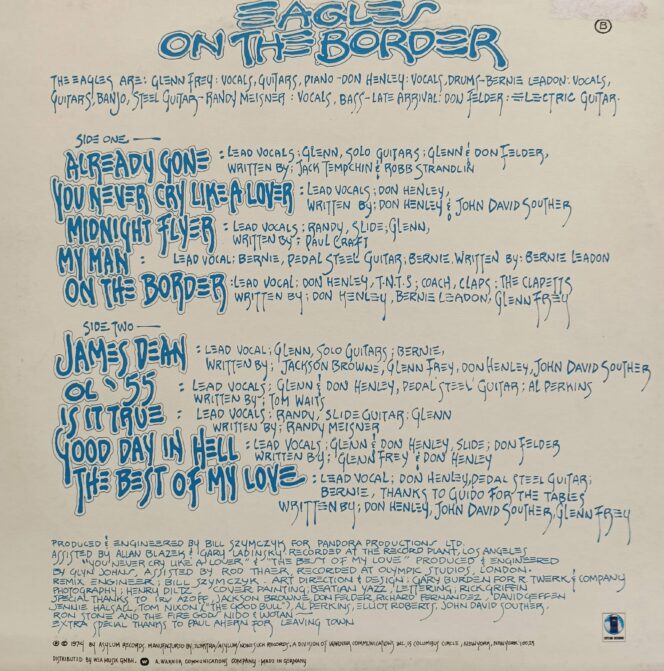 EAGLES
ON THE BORDER
B
THE EAGLES ARE: GLENN FREY: VOCALS, GUITARS, PIANO - DON HENLEY: VOCALS, DRUMS - BERNIE LEADON: VOCALS,
GUITARS, BANJO, STEEL GUITAR - RANDY MEISNER: VOCALS, BASS - LATE ARRIVAL: DON FELDER: ELECTRIC GUITAR.
SIDE ONE —
ALREADY GONE : LEAD VOCALS; GLENN, SOLO GUITARS; GLENN & DON FELDER,
WRITTEN BY; JACK TEMPCHIN & ROBB STRANDLIN
YOU NEVER CRY LIKE A LOVER : LEAD VOCALS; DON HENLEY,
WRITTEN BY: DON HENLEY & JOHN DAVID SOUTHER
MIDNIGHT FLYER : LEAD VOCALS; RANDY, SLIDE; GLENN,
WRITTEN BY; PAUL CRAFT
MY MAN : LEAD VOCAL: BERNIE, PEDAL STEEL GUITAR; BERNIE, WRITTEN BY: BERNIE LEADON
ON THE BORDER : LEAD VOCAL; DON HENLEY, T.N.T.S; COACH, CLAPS; THE CLAPETTS
WRITTEN BY; DON HENLEY, BERNIE LEADON, GLENN FREY
SIDE TWO —
JAMES DEAN : LEAD VOCAL; GLENN, SOLO GUITARS; BERNIE,
WRITTEN BY; JACKSON BROWNE, GLENN FREY, DON HENLEY, JOHN DAVID SOUTHER
OL' 55 : LEAD VOCALS; GLENN & DON HENLEY, PEDAL STEEL GUITAR; AL PERKINS
WRITTEN BY; TOM WAITS
IS IT TRUE : LEAD VOCALS; RANDY, SLIDE GUITAR: GLENN
WRITTEN BY; RANDY MEISNER
GOOD DAY IN HELL : LEAD VOCALS; GLENN & DON HENLEY, SLIDE; DON FELDER
WRITTEN BY; GLENN FREY & DON HENLEY
THE BEST OF MY LOVE : LEAD VOCAL; DON HENLEY, PEDAL STEEL GUITAR;
BERNIE, THANKS TO GUIDO FOR THE TABLES
WRITTEN BY; DON HENLEY, JOHN DAVID SOUTHER, GLENN FREY
PRODUCED & ENGINEERED BY BILL SZYMCZYK FOR PANDORA PRODUCTIONS LTD.
ASSISTED BY ALLAN BLAZEK & GARY LADINSKY. RECORDED AT THE RECORD PLANT, LOS ANGELES
"YOU NEVER CRY LIKE A LOVER" & "THE BEST OF MY LOVE" PRODUCED & ENGINEERED
BY GLYN JOHNS, ASSISTED BY ROD THAER, RECORDED AT OLYMPIC STUDIOS, LONDON.
REMIX ENGINEER; BILL SZYMCZYK. ART DIRECTION & DESIGN; GARY BURDEN FOR R. TWERK & COMPANY
PHOTOGRAPHY; HENRY DILTZ COVER PAINTING; BEATIAN YAZZ, LETTERING; RICK GRIFFIN
SPECIAL THANKS TO: IRV AZOFF, JACKSON BROWNE, DON FELDER, RICHARD FERNANDEZ, DAVID GEFFEN
JENNIE HALSALL, TOM NIXON ("THE GOOD BULL"), AL PERKINS, ELLIOT ROBERTS, JOHN DAVID SOUTHER,
RON STONE AND THE FIRE GODS NIDO & WOTAN
EXTRA SPECIAL THANKS TO PAUL AHERN FOR LEAVING TOWN
℗ © 1974 BY ASYLUM RECORDS. MANUFACTURED BY ELEKTRA/ASYLUM/NONESUCH RECORDS, A DIVISION OF WARNER COMMUNICATIONS INC. 15 COLUMBUS CIRCLE, NEW YORK, NEW YORK 10023
DISTRIBUTED BY WEA MUSIK GMBH. A WARNER COMMUNICATIONS COMPANY · MADE IN GERMANY